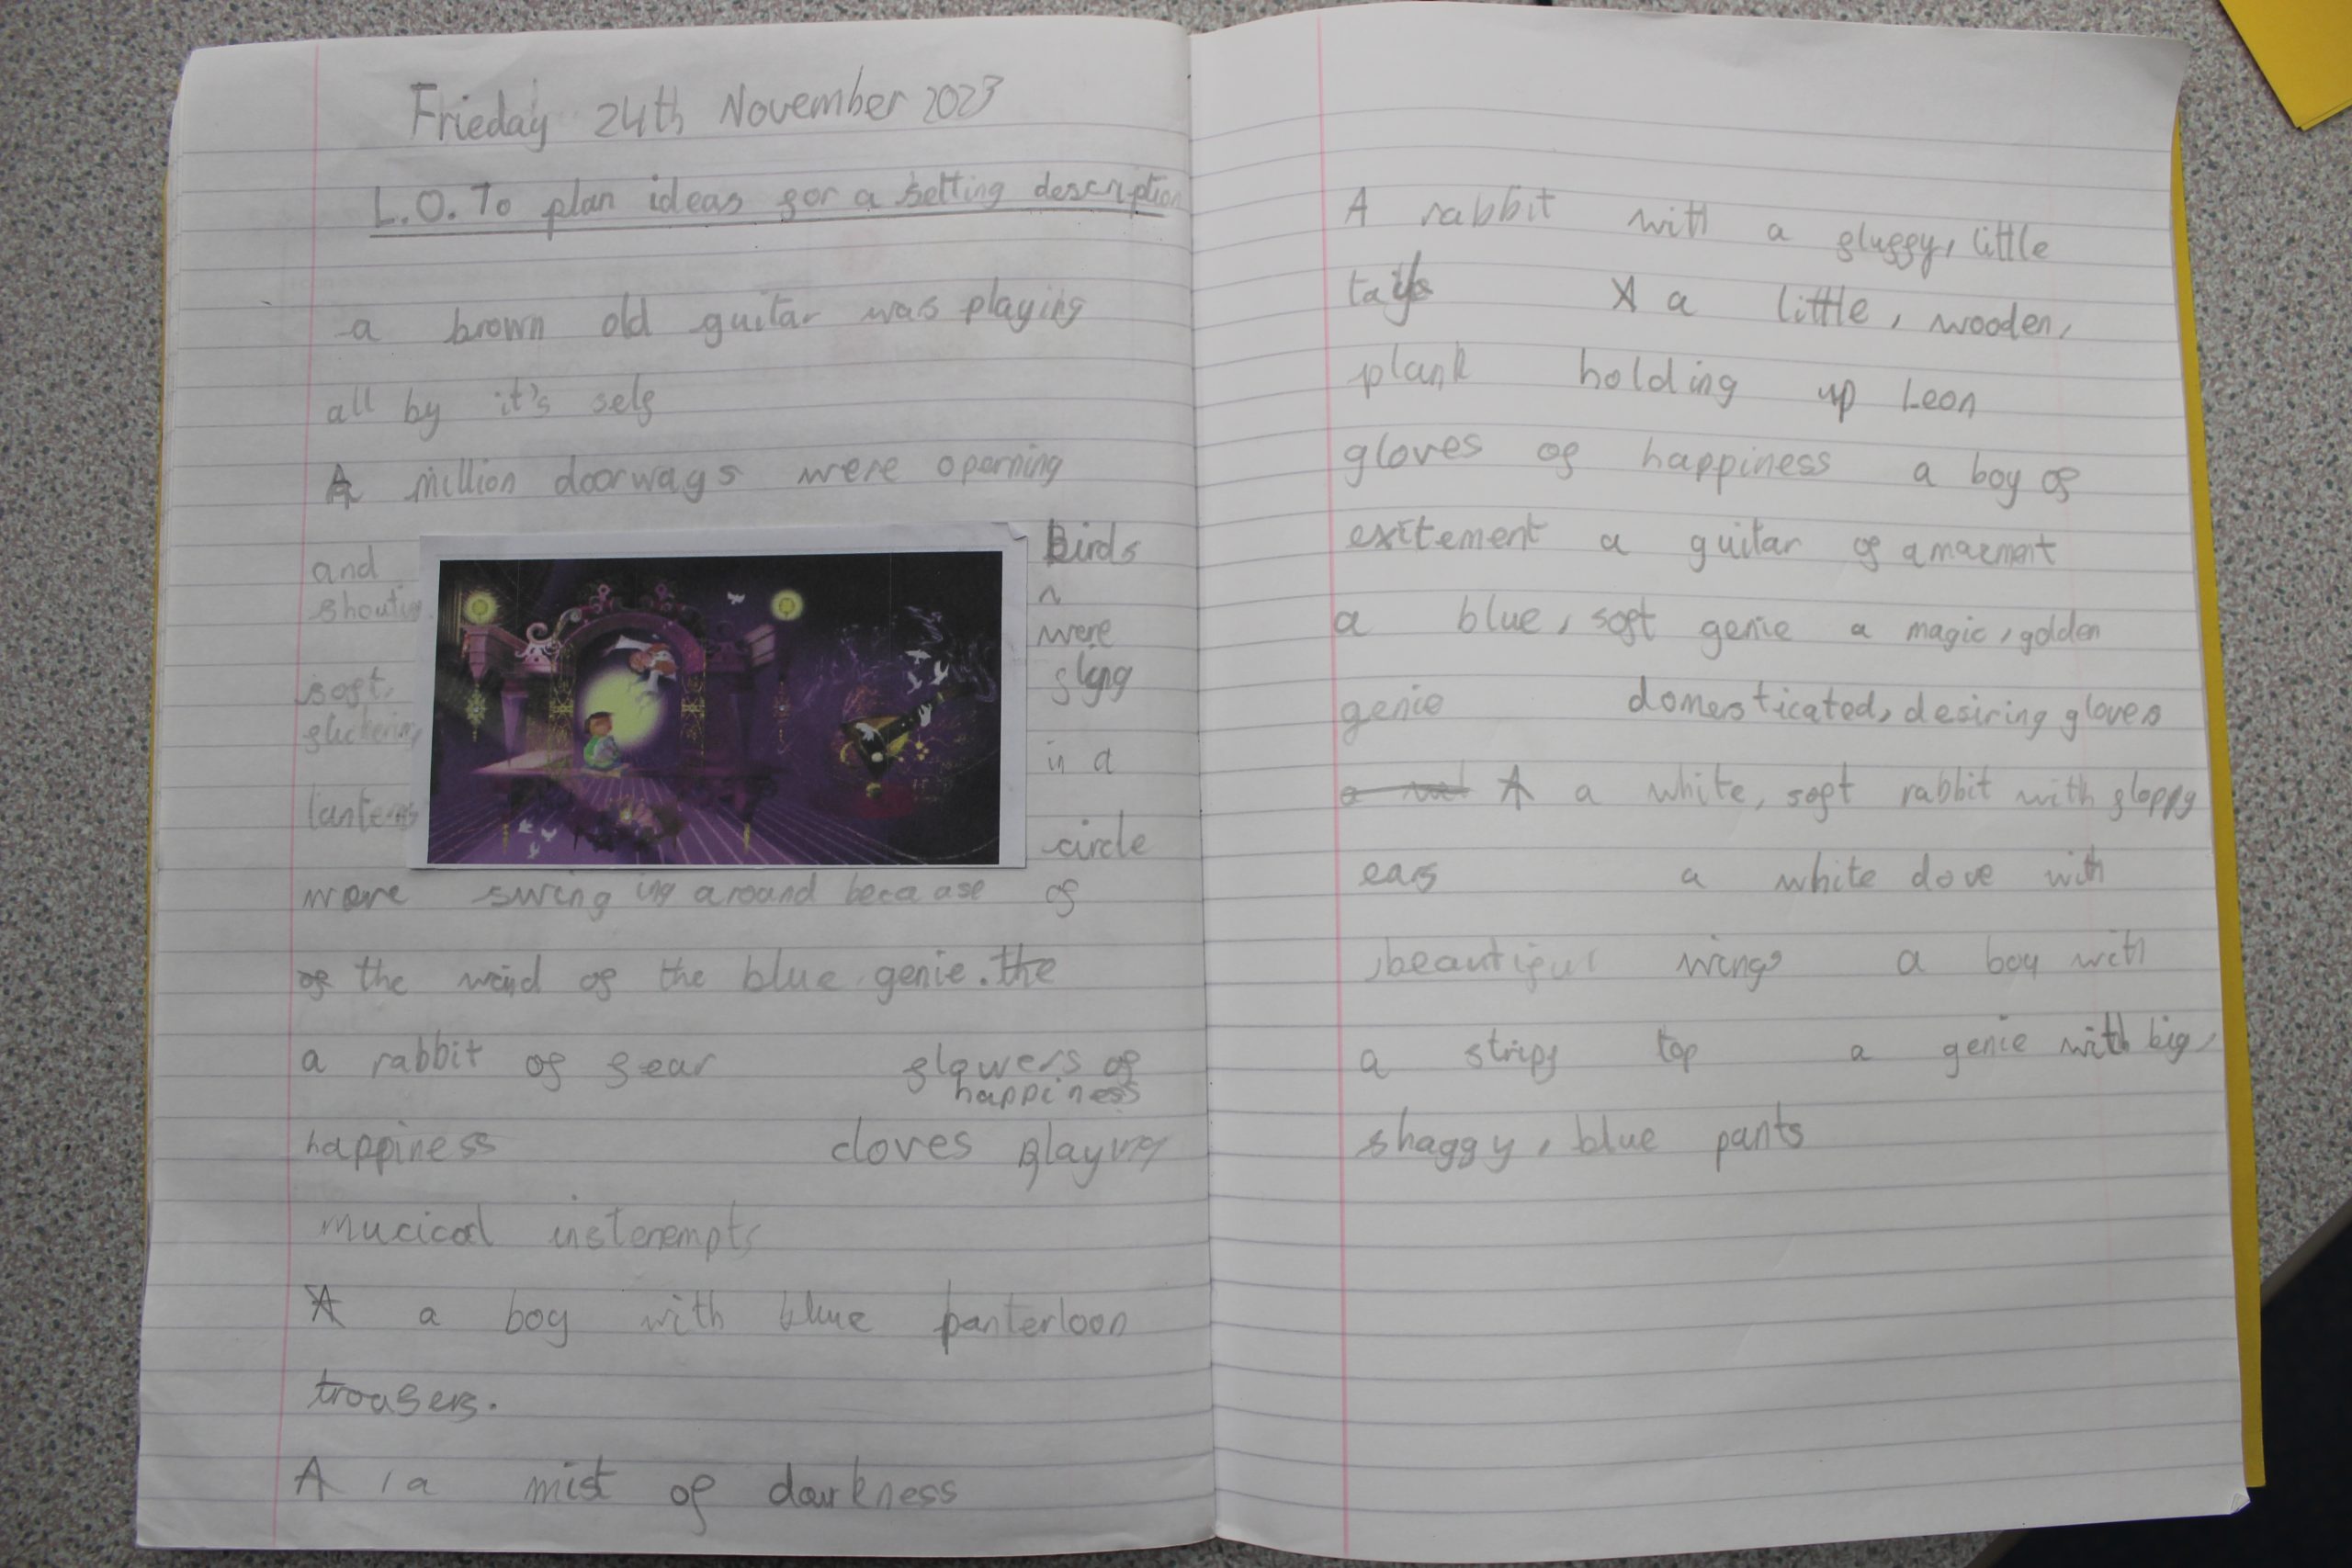 Frieday 24th November 2023
L.O. To plan ideas for a setting description
a brown old guitar was playing
all by it's self
A million doorways were operning
and
shouting
soft,
lanterns
were swinging around because
of the wind of the blue genie. the
Birds
were
flyng
in a
circle
of
a rabbit of fear flowers of
happiness
happiness doves playing
mucical insterempts
A a boy with blue panterloon
trousers.
A a mist of darkness
A rabbit with a fluffy, little
tail A a little, wooden,
plank holding up Leon
gloves of happiness a boy of
exitement a guitar of amazment
a blue, soft genie a magic, golden
genie domesticated, desiring gloves
A a white, soft rabbit with floppy
ears a white dove with
beautiful wings a boy with
a stripy top a genie with big,
shaggy, blue pants